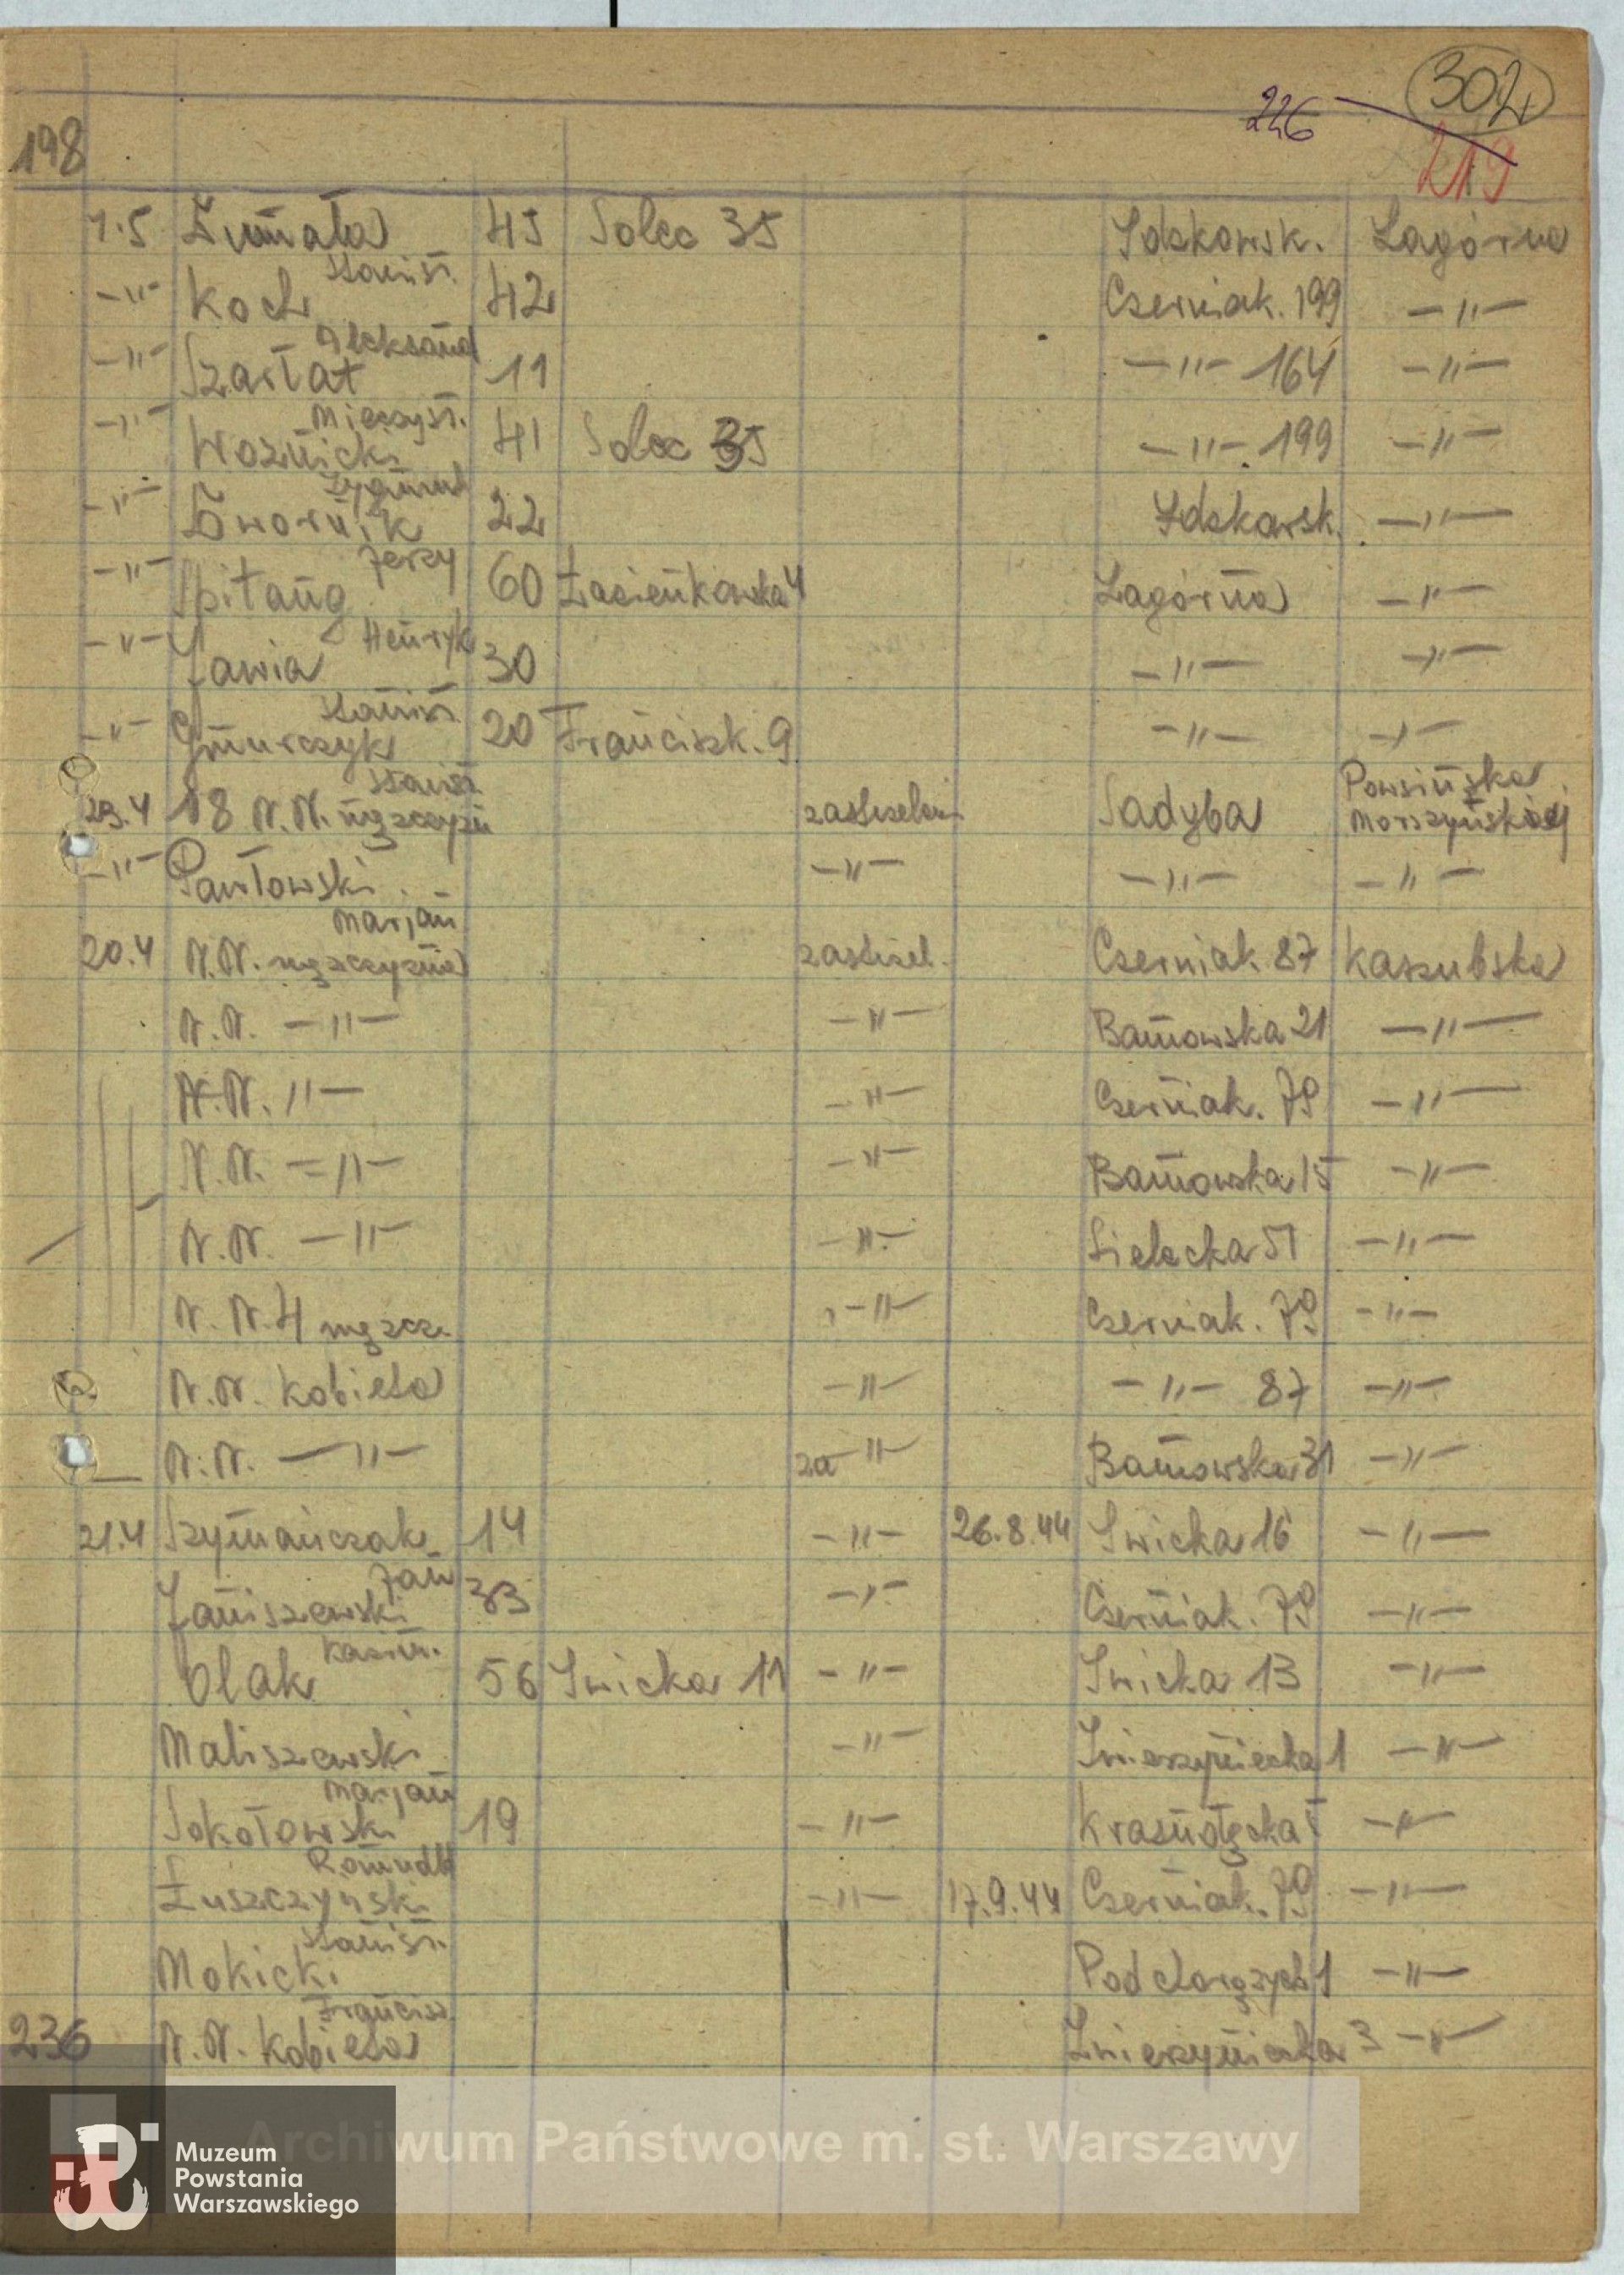 302
226
219
198
1.5 Żumała 45 Solec 35 Idzkowsk. Zagórna
Stanisł.
—"— Koch 42 Czerniak. 199 —"—
Aleksand
—"— Szarłat 11 —"— 164 —"—
Mieczysł.
—"— Woźnicki 41 Solec 35 —"— 199 —"—
Zygmunt
—"— Dwornik 22 Idzkowsk. —"—
Jerzy
—"— Spitang 60 Łazienkowska 4 Zagórna —"—
Henryk
—"— Jawia 30 —"— —"—
Stanisł.
—"— Gmurczyk 20 Franciszk. 9 —"— —"—
Stanisł.
29.4 18 N.N. mężczyzn zastrzeleni Sadyba Powsińska
Morszyńskiej
—"— Pawłowski —"— —"— —"—
Marjan
20.4 N.N. mężczyzna zastrzel. Czerniak. 87 Kaszubska
N.N. —"— —"— Bańowska 21 —"—
N.N. "— —"— Czerniak. 79 —"—
N.N. —"— —"— Bańowska 15 —"—
N.N. —"— —"— Sielecka 51 —"—
N.N. 4 mężcz. —"— Czerniak. 79 —"—
N.N. Kobieta —"— —"— 87 —"—
N.N. —"— za —"— Bańowska 31 —"—
21.4 Szymańczak 14 —"— 26.8.44 Iwicka 16 —"—
Jan
Janiszewski 33 —"— Czerniak. 79 —"—
Kazim.
Olak 56 Iwicka 11 —"— Iwicka 13 —"—
Maliszewski —"— Zwierzyniecka 1 —"—
Marjan
Sokołowski 19 —"— Krasnołęcka 5 —"—
Romuald
Łuszczyński —"— 17.9.44 Czerniak. 79 —"—
Stanisł.
Mokicki Podchorążych 1 —"—
Francisz.
236 N.N. Kobieta Zwierzyniecka 3 —"—
Archiwum Państwowe m. st. Warszawy
Muzeum
Powstania
Warszawskiego